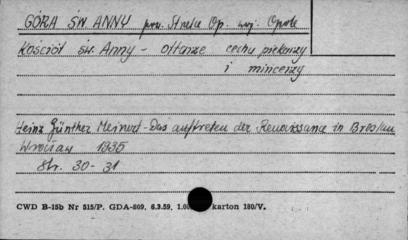 GÓRA ŚW. ANNY pow. Strzelce Op. woj: Opole
Kościół św. Anny - ołtarze cechu piekarzy
i mincerzy
Heinz Günther Meinert - Das auftreten der Renaissance in Breslau
Wrocław 1935
Str. 30-31
CWD B-15b Nr 515/P. GDA-809. 6.3.59. karton 180/V.